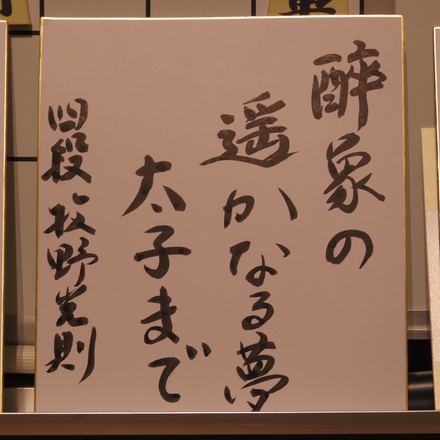 醉象の
遥かなる夢
太子まで
四段 牧野光則